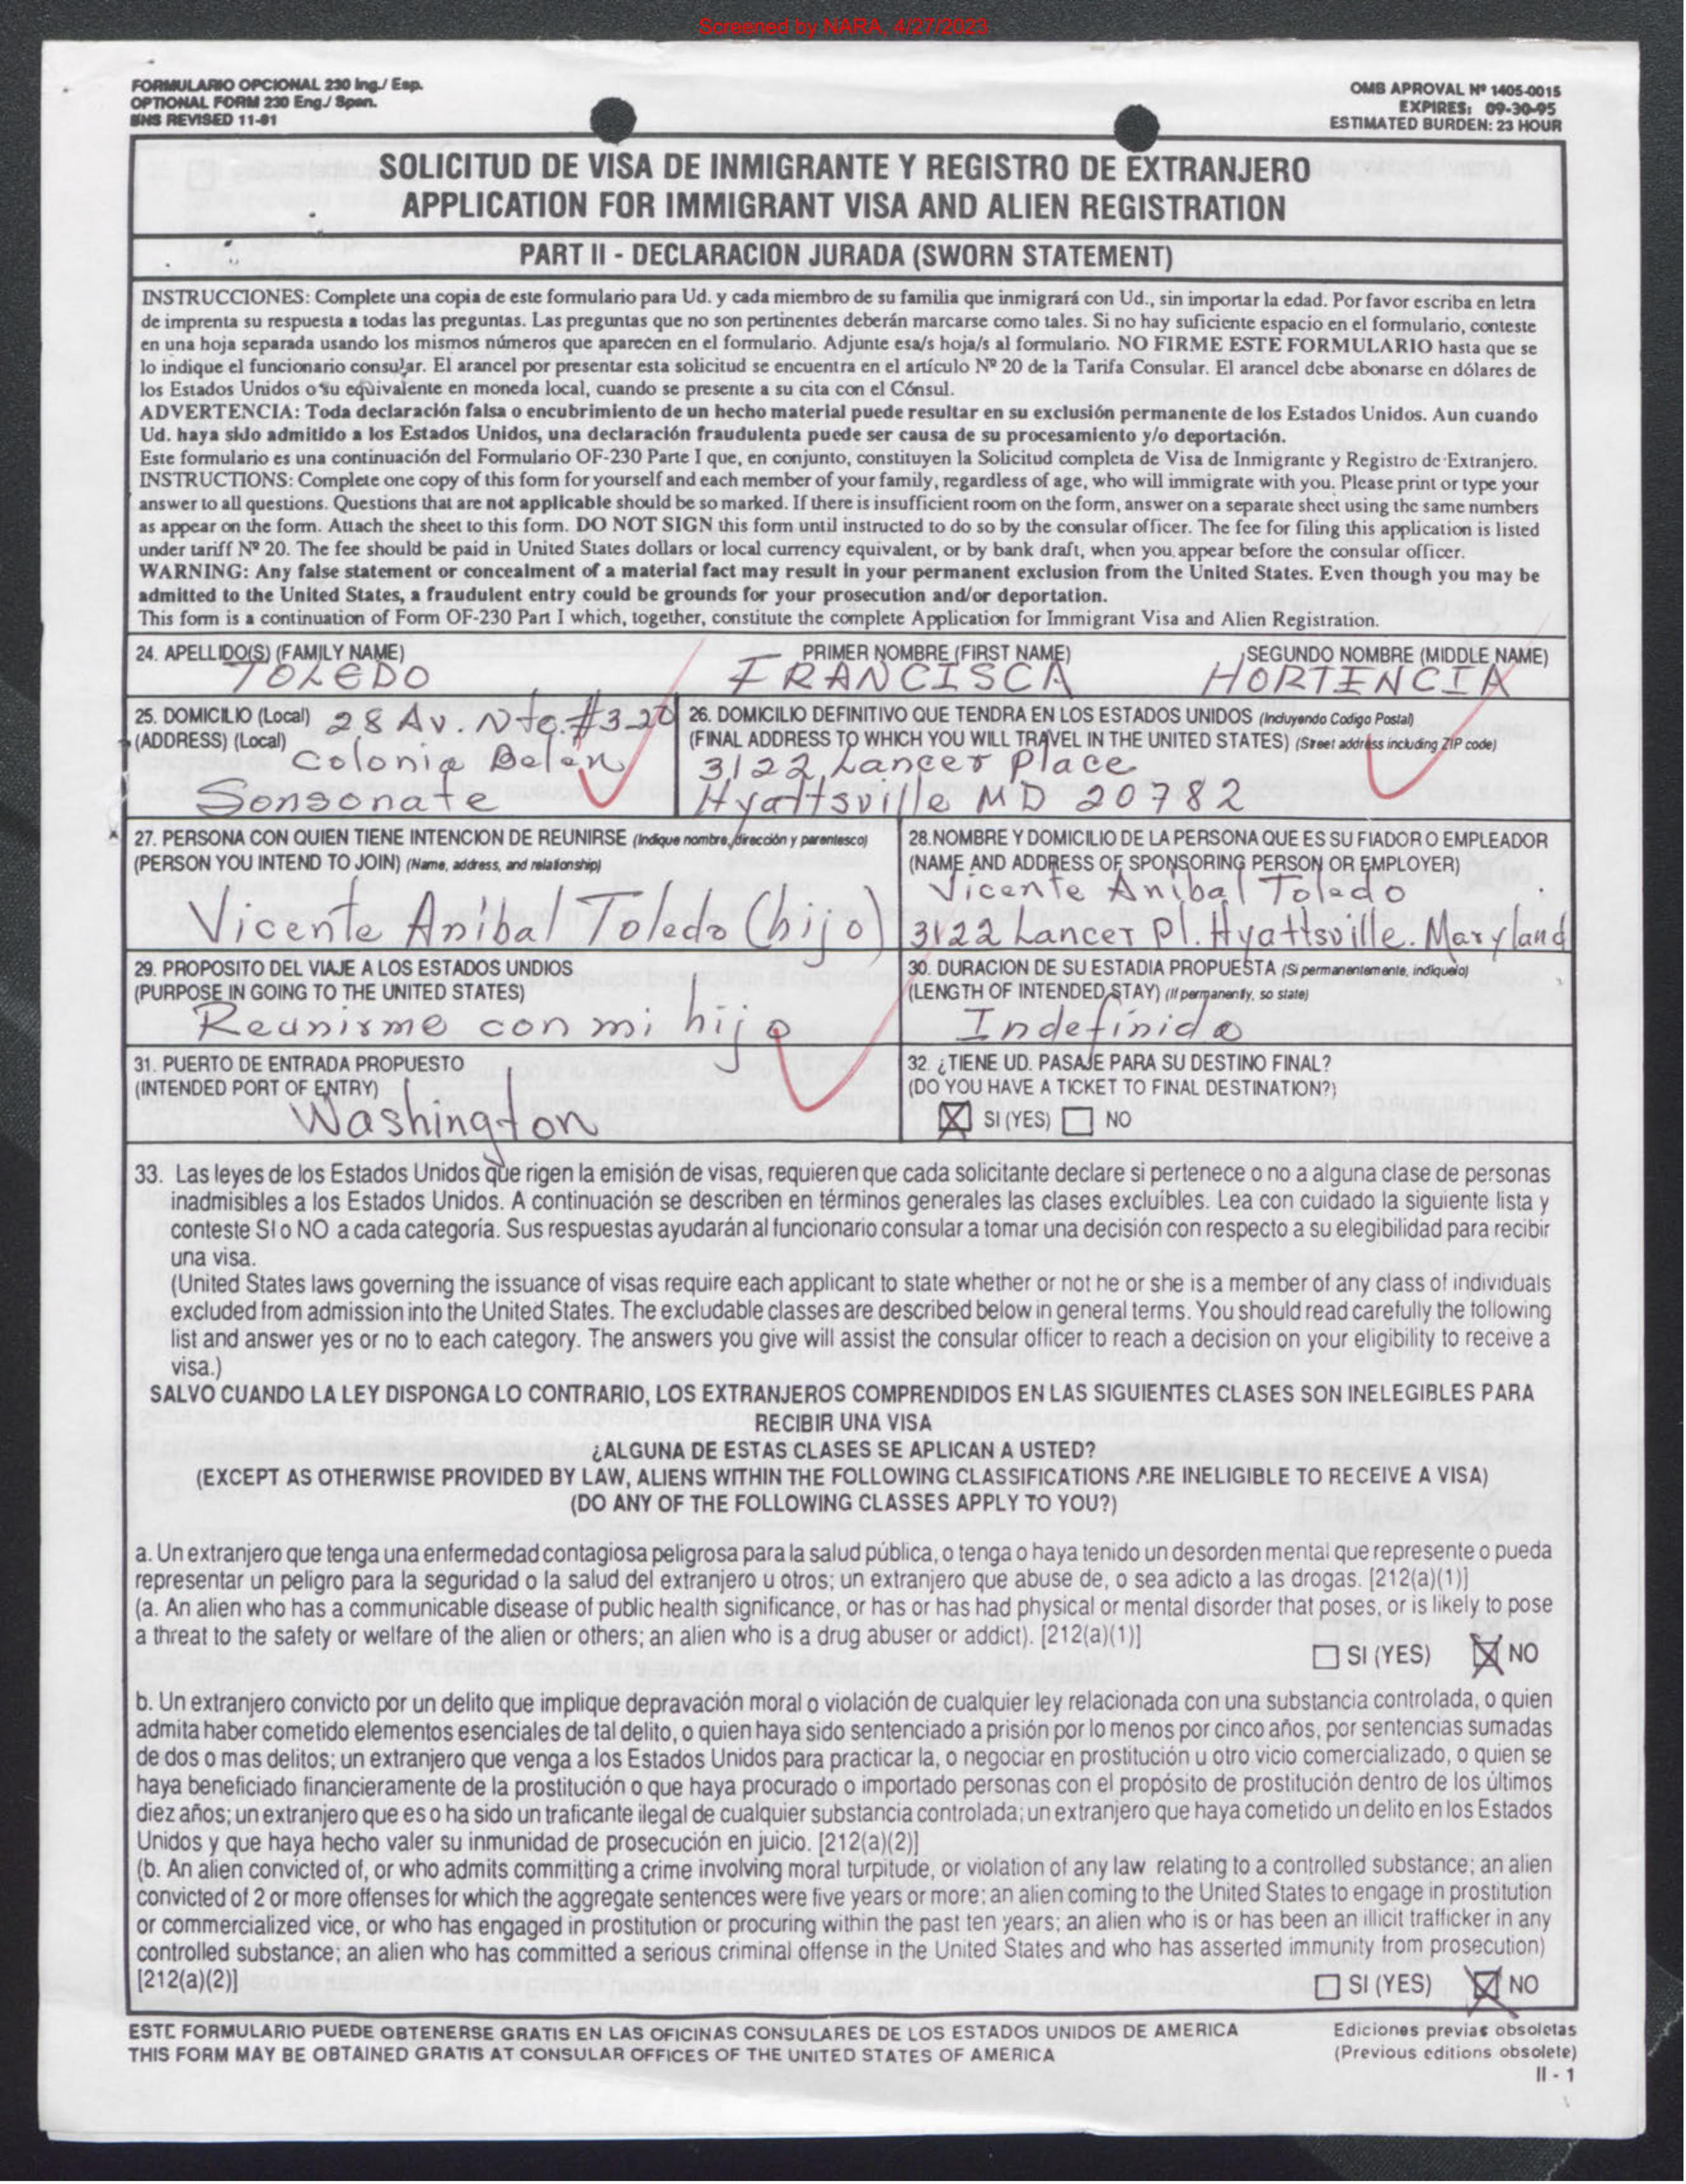 Screened by NARA, 4/27/2023
FORMULARIO OPCIONAL 230 Ing./ Esp.
OPTIONAL FORM 230 Eng./ Span.
BNS REVISED 11-91
OMB APROVAL Nº 1405-0015
EXPIRES: 09-30-95
ESTIMATED BURDEN: 23 HOUR
SOLICITUD DE VISA DE INMIGRANTE Y REGISTRO DE EXTRANJERO
APPLICATION FOR IMMIGRANT VISA AND ALIEN REGISTRATION
PART II - DECLARACION JURADA (SWORN STATEMENT)
INSTRUCCIONES: Complete una copia de este formulario para Ud. y cada miembro de su familia que inmigrará con Ud., sin importar la edad. Por favor escriba en letra
de imprenta su respuesta a todas las preguntas. Las preguntas que no son pertinentes deberán marcarse como tales. Si no hay suficiente espacio en el formulario, conteste
en una hoja separada usando los mismos números que aparecen en el formulario. Adjunte esa/s hoja/s al formulario. NO FIRME ESTE FORMULARIO hasta que se
lo indique el funcionario consular. El arancel por presentar esta solicitud se encuentra en el artículo Nº 20 de la Tarifa Consular. El arancel debe abonarse en dólares de
los Estados Unidos o su equivalente en moneda local, cuando se presente a su cita con el Cónsul.
ADVERTENCIA: Toda declaración falsa o encubrimiento de un hecho material puede resultar en su exclusión permanente de los Estados Unidos. Aun cuando
Ud. haya sido admitido a los Estados Unidos, una declaración fraudulenta puede ser causa de su procesamiento y/o deportación.
Este formulario es una continuación del Formulario OF-230 Parte I que, en conjunto, constituyen la Solicitud completa de Visa de Inmigrante y Registro de Extranjero.
INSTRUCTIONS: Complete one copy of this form for yourself and each member of your family, regardless of age, who will immigrate with you. Please print or type your
answer to all questions. Questions that are not applicable should be so marked. If there is insufficient room on the form, answer on a separate sheet using the same numbers
as appear on the form. Attach the sheet to this form. DO NOT SIGN this form until instructed to do so by the consular officer. The fee for filing this application is listed
under tariff Nº 20. The fee should be paid in United States dollars or local currency equivalent, or by bank draft, when you appear before the consular officer.
WARNING: Any false statement or concealment of a material fact may result in your permanent exclusion from the United States. Even though you may be
admitted to the United States, a fraudulent entry could be grounds for your prosecution and/or deportation.
This form is a continuation of Form OF-230 Part I which, together, constitute the complete Application for Immigrant Visa and Alien Registration.
24. APELLIDO(S) (FAMILY NAME) PRIMER NOMBRE (FIRST NAME) SEGUNDO NOMBRE (MIDDLE NAME)
TOLEDO FRANCISCA HORTENCIA
25. DOMICILIO (Local) 28 Av. Nte. #3-20
(ADDRESS) (Local) Colonia Belen
Sonsonate
26. DOMICILIO DEFINITIVO QUE TENDRA EN LOS ESTADOS UNIDOS (Incluyendo Codigo Postal)
(FINAL ADDRESS TO WHICH YOU WILL TRAVEL IN THE UNITED STATES) (Street address including ZIP code)
3122 Lancer Place
Hyattsville MD 20782
27. PERSONA CON QUIEN TIENE INTENCION DE REUNIRSE (Indique nombre, dirección y parentesco)
(PERSON YOU INTEND TO JOIN) (Name, address, and relationship)
Vicente Anibal Toledo (hijo)
28. NOMBRE Y DOMICILIO DE LA PERSONA QUE ES SU FIADOR O EMPLEADOR
(NAME AND ADDRESS OF SPONSORING PERSON OR EMPLOYER)
Vicente Anibal Toledo
3122 Lancer Pl. Hyattsville. Maryland
29. PROPOSITO DEL VIAJE A LOS ESTADOS UNDIOS
(PURPOSE IN GOING TO THE UNITED STATES)
Reunirme con mi hijo
30. DURACION DE SU ESTADIA PROPUESTA (Si permanentemente, indiquelo)
(LENGTH OF INTENDED STAY) (If permanently, so state)
Indefinido
31. PUERTO DE ENTRADA PROPUESTO
(INTENDED PORT OF ENTRY)
Washington
32. ¿TIENE UD. PASAJE PARA SU DESTINO FINAL?
(DO YOU HAVE A TICKET TO FINAL DESTINATION?)
SI (YES) NO
33. Las leyes de los Estados Unidos que rigen la emisión de visas, requieren que cada solicitante declare si pertenece o no a alguna clase de personas
inadmisibles a los Estados Unidos. A continuación se describen en términos generales las clases excluibles. Lea con cuidado la siguiente lista y
conteste SI o NO a cada categoría. Sus respuestas ayudarán al funcionario consular a tomar una decisión con respecto a su elegibilidad para recibir
una visa.
(United States laws governing the issuance of visas require each applicant to state whether or not he or she is a member of any class of individuals
excluded from admission into the United States. The excludable classes are described below in general terms. You should read carefully the following
list and answer yes or no to each category. The answers you give will assist the consular officer to reach a decision on your eligibility to receive a
visa.)
SALVO CUANDO LA LEY DISPONGA LO CONTRARIO, LOS EXTRANJEROS COMPRENDIDOS EN LAS SIGUIENTES CLASES SON INELEGIBLES PARA
RECIBIR UNA VISA
¿ALGUNA DE ESTAS CLASES SE APLICAN A USTED?
(EXCEPT AS OTHERWISE PROVIDED BY LAW, ALIENS WITHIN THE FOLLOWING CLASSIFICATIONS ARE INELIGIBLE TO RECEIVE A VISA)
(DO ANY OF THE FOLLOWING CLASSES APPLY TO YOU?)
a. Un extranjero que tenga una enfermedad contagiosa peligrosa para la salud pública, o tenga o haya tenido un desorden mental que represente o pueda
representar un peligro para la seguridad o la salud del extranjero u otros; un extranjero que abuse de, o sea adicto a las drogas. [212(a)(1)]
(a. An alien who has a communicable disease of public health significance, or has or has had physical or mental disorder that poses, or is likely to pose
a threat to the safety or welfare of the alien or others; an alien who is a drug abuser or addict). [212(a)(1)]
SI (YES) NO
b. Un extranjero convicto por un delito que implique depravación moral o violación de cualquier ley relacionada con una substancia controlada, o quien
admita haber cometido elementos esenciales de tal delito, o quien haya sido sentenciado a prisión por lo menos por cinco años, por sentencias sumadas
de dos o mas delitos; un extranjero que venga a los Estados Unidos para practicar la, o negociar en prostitución u otro vicio comercializado, o quien se
haya beneficiado financieramente de la prostitución o que haya procurado o importado personas con el propósito de prostitución dentro de los últimos
diez años; un extranjero que es o ha sido un traficante ilegal de cualquier substancia controlada; un extranjero que haya cometido un delito en los Estados
Unidos y que haya hecho valer su inmunidad de prosecución en juicio. [212(a)(2)]
(b. An alien convicted of, or who admits committing a crime involving moral turpitude, or violation of any law relating to a controlled substance; an alien
convicted of 2 or more offenses for which the aggregate sentences were five years or more; an alien coming to the United States to engage in prostitution
or commercialized vice, or who has engaged in prostitution or procuring within the past ten years; an alien who is or has been an illicit trafficker in any
controlled substance; an alien who has committed a serious criminal offense in the United States and who has asserted immunity from prosecution)
[212(a)(2)]
SI (YES) NO
ESTE FORMULARIO PUEDE OBTENERSE GRATIS EN LAS OFICINAS CONSULARES DE LOS ESTADOS UNIDOS DE AMERICA
THIS FORM MAY BE OBTAINED GRATIS AT CONSULAR OFFICES OF THE UNITED STATES OF AMERICA
Ediciones previas obsoletas
(Previous editions obsolete)
II - 1